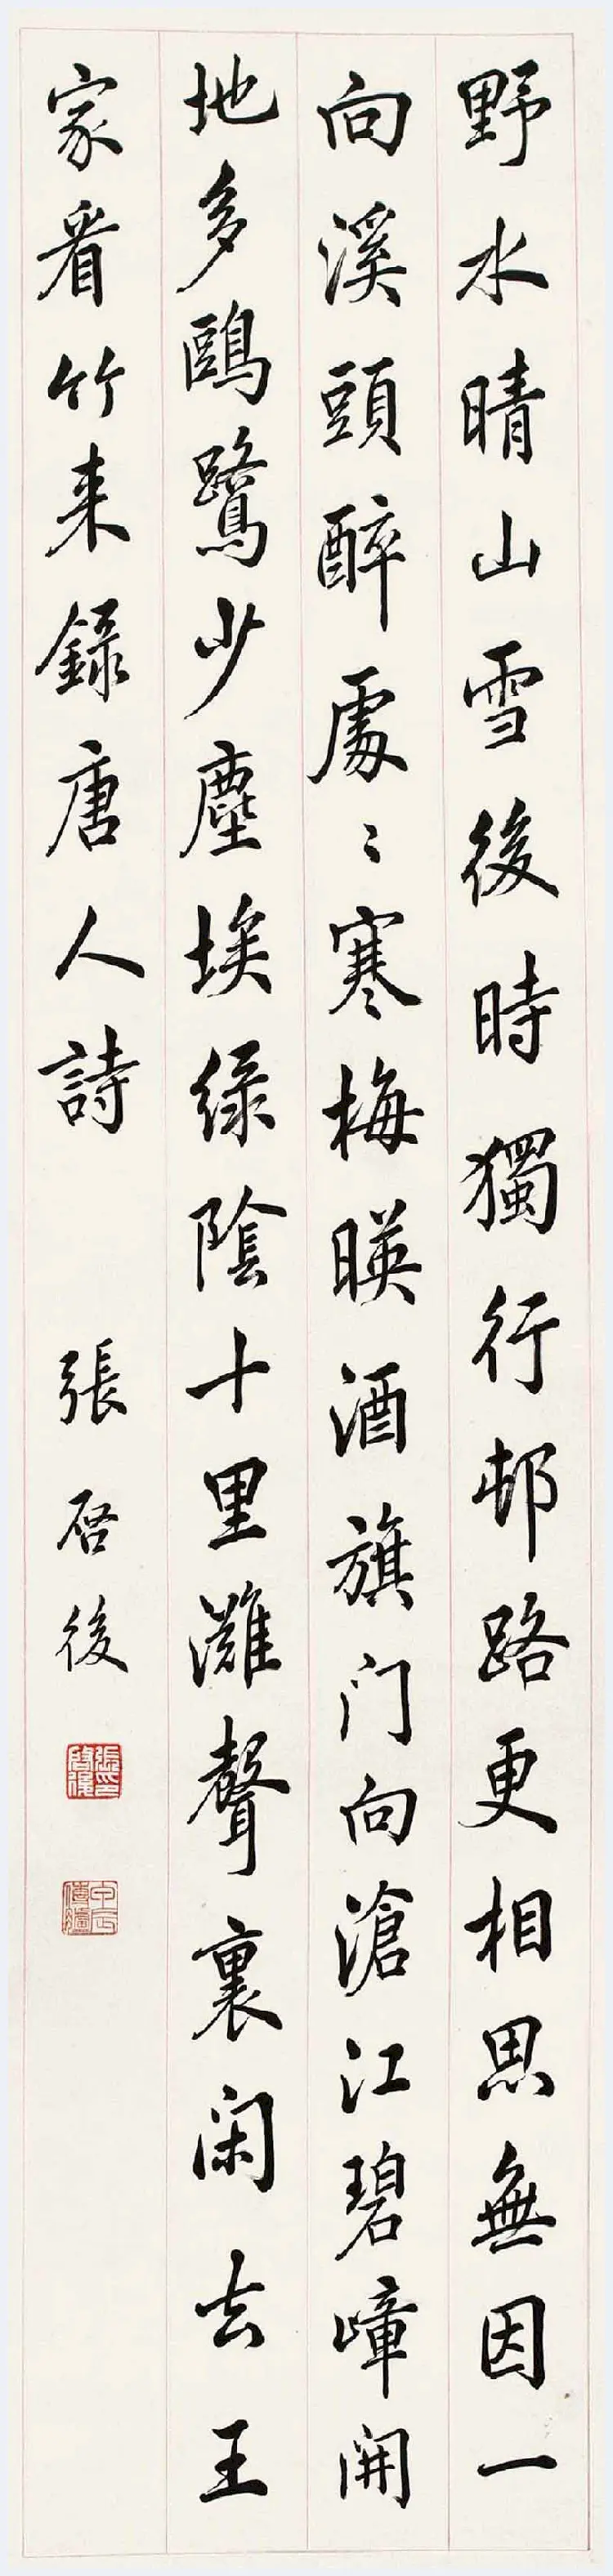 野水晴山雪後時獨行邨路更相思無因一
向溪頭醉處〻寒梅暎酒旗门向滄江碧嶂開
地多鷗鷺少塵埃緑陰十里灘聲裏闲去王
家看竹来録唐人詩
張啓後
張啓後印
甲辰傳臚